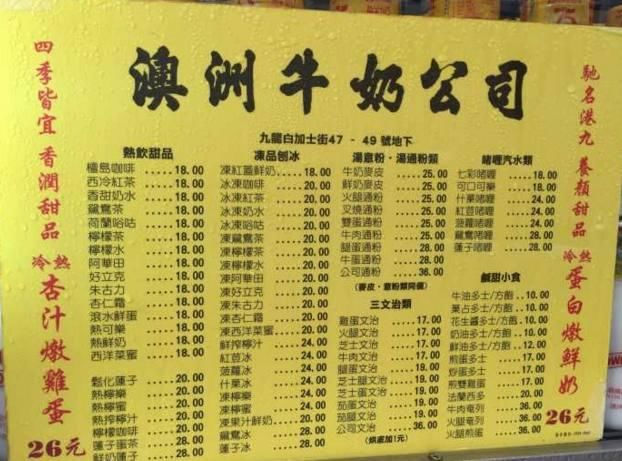 澳洲牛奶公司
九龍白加士街47 - 49 號地下
四季皆宜 香潤甜品
冷熱 杏汁燉雞蛋
26元
熱飲甜品
檀島咖啡 .....18.00
西冷紅茶 .....18.00
香甜奶水 .....18.00
鴛鴦茶 .....18.00
荷蘭哈咕 .....18.00
檸檬茶 .....18.00
檸檬水 .....18.00
阿華田 .....18.00
好立克 .....18.00
朱古力 .....18.00
杏仁霜 .....18.00
滾水鮮蛋 .....18.00
熱可樂 .....18.00
熱鮮奶 .....18.00
西洋菜蜜 .....18.00
鬆化蓮子 .....20.00
熱檸樂 .....20.00
熱檸蜜 .....20.00
熱撈檸汁 .....20.00
檸檬咖啡 .....20.00
蓮子蛋茶 .....28.00
鮮奶蓮子 .....28.00
凍品刨冰
凍紅蓋鮮奶 .....18.00
冰凍咖啡 .....20.00
冰凍紅茶 .....20.00
冰凍奶水 .....20.00
冰凍哈咕 .....20.00
凍鴛鴦茶 .....20.00
凍檸檬茶 .....20.00
凍檸檬水 .....20.00
凍阿華田 .....20.00
凍好立克 .....20.00
凍朱古力 .....20.00
凍杏仁霜 .....20.00
凍西洋菜蜜 .....20.00
鮮撈檸汁 .....24.00
紅荳冰 .....24.00
菠蘿冰 .....24.00
什菓冰 .....24.00
凍檸樂 .....24.00
凍檸蜜 .....24.00
凍菓汁鮮奶 .....24.00
鴛鴦冰 .....28.00
蓮子冰 .....28.00
湯意粉・湯通粉類
牛奶麥皮 .....25.00
鮮奶麥皮 .....25.00
火腿通粉 .....25.00
叉燒通粉 .....25.00
雙蛋通粉 .....25.00
牛肉通粉 .....25.00
腿蛋通粉 .....28.00
牛蛋通粉 .....28.00
公司通粉 .....36.00
(麥皮、意粉類同價)
三文治類
雞蛋文治 .....17.00
火腿文治 .....17.00
芝士文治 .....17.00
牛肉文治 .....17.00
腿蛋文治 .....19.00
芝士腿文治 .....19.00
芝士蛋文治 .....19.00
茄蛋文治 .....19.00
茄腿文治 .....19.00
公司文治 .....36.00
(烘底加1元)
啫喱汽水類
七彩啫喱 .....18.00
可口可樂 .....18.00
什菓啫喱 .....24.00
紅荳啫喱 .....24.00
菠蘿啫喱 .....24.00
鴛鴦啫喱 .....28.00
蓮子啫喱 .....28.00
鹹甜小食
牛油多士/方飽 ..10.00
菓占多士/方飽 ..10.00
花生醬多士/方飽 ..10.00
奶油多士/方飽 ..10.00
鮮油多士/方飽 ..12.00
煎蛋多士 .....17.00
炒蛋多士 .....17.00
煎雙雞蛋 .....17.00
法蘭西多 .....20.00
牛肉奄列 .....36.00
火腿奄列 .....36.00
火腿煎蛋 .....36.00
馳名港九 養顏甜品
冷熱 蛋白燉鮮奶
26元